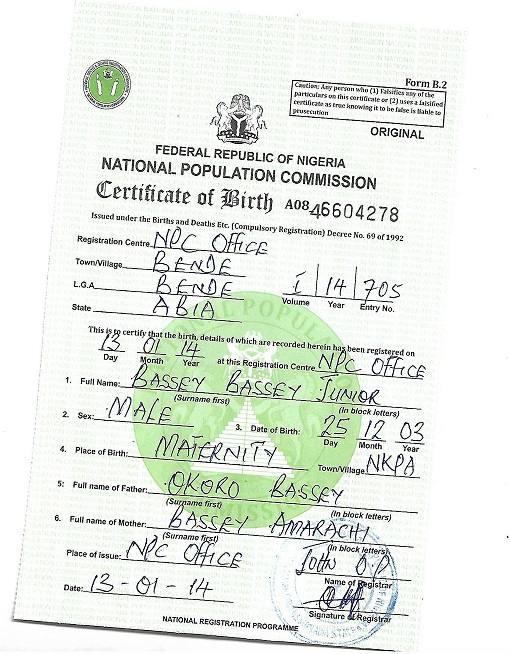 Form B.2
Caution: Any person who (1) Falsifies any of the
particulars on this certificate or (2) uses a falsified
certificate as true knowing it to be false is liable to
prosecution
ORIGINAL
FEDERAL REPUBLIC OF NIGERIA
NATIONAL POPULATION COMMISSION
Certificate of Birth A08 46604278
Issued under the Births and Deaths Etc. (Compulsory Registration) Decree No. 69 of 1992
Registration Centre NPC OFFICE
Town/Village BENDE
L.G.A. BENDE I 14 705
Volume Year Entry No.
State ABIA
This is to certify that the birth, details of which are recorded herein has been registered on
13 01 14 at this Registration Centre NPC OFFICE
Day Month Year
1. Full Name: BASSEY BASSEY JUNIOR
(Surname first) (In block letters)
2. Sex: MALE 3. Date of Birth: 25 12 03
Day Month Year
4. Place of Birth: MATERNITY Town/Village NKPA
5: Full name of Father: OKORO BASSEY
(Surname first) (In block letters)
6. Full name of Mother: BASSEY AMARACHI
(Surname first) (In block letters)
Place of issue: NPC OFFICE John O.P
Name of Registrar
Date: 13-01-14
Signature of Registrar
NATIONAL REGISTRATION PROGRAMME